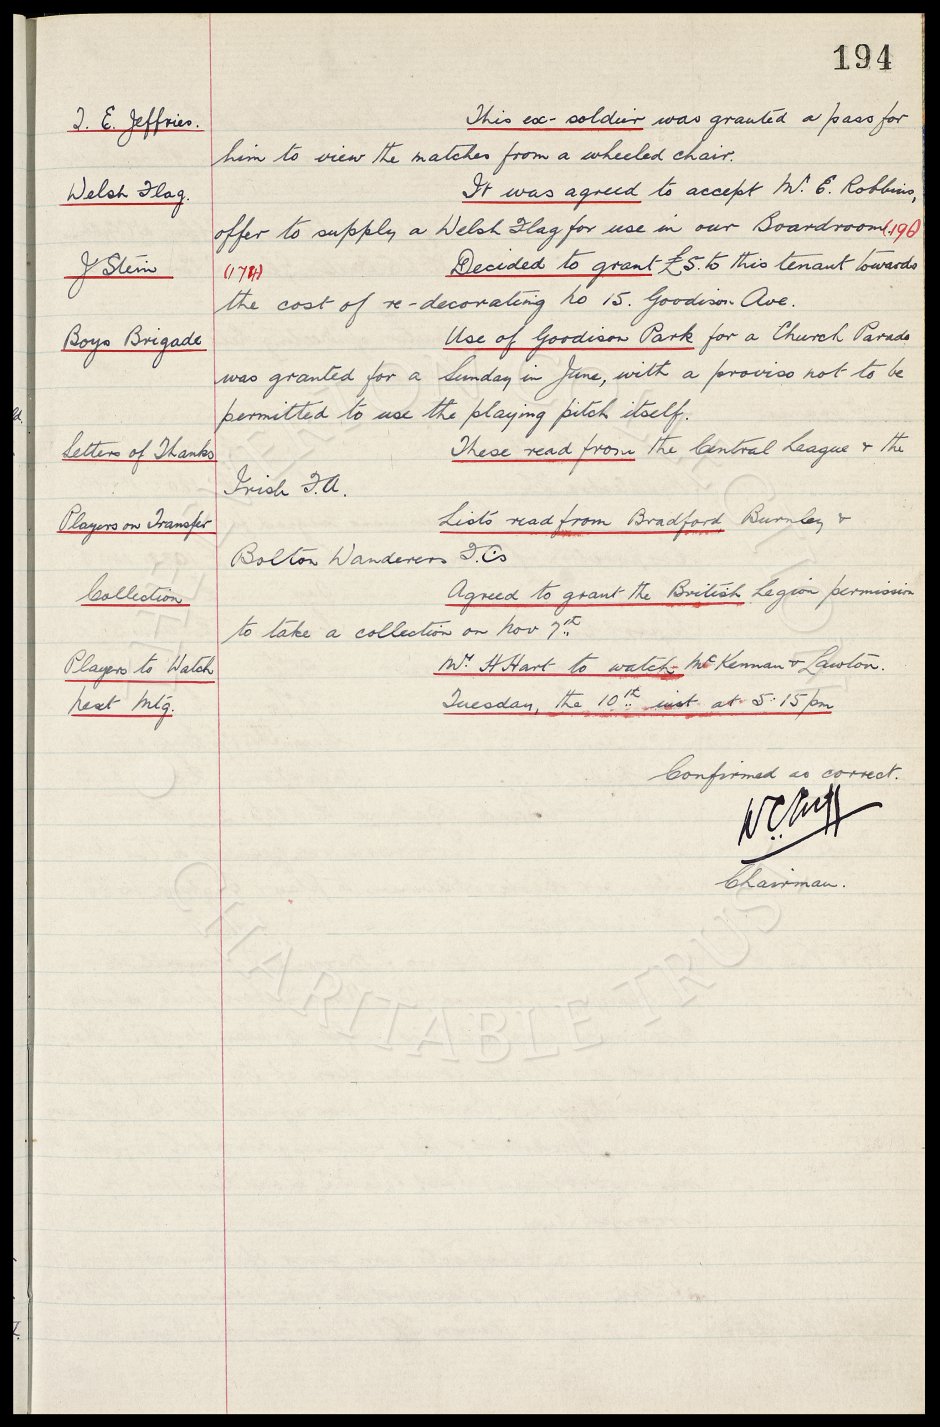 194
T. E. Jeffries. This ex-soldier was granted a pass for
him to view the matches from a wheeled chair.
Welsh Flag. It was agreed to accept Mr. E. Robbins,
offer to supply a Welsh Flag for use in our Boardroom (196)
J Stein (174) Decided to grant £5. to this tenant towards
the cost of re-decorating No 15. Goodison Ave.
Boys Brigade Use of Goodison Park for a Church Parade
was granted for a Sunday in June, with a proviso not to be
permitted to use the playing pitch itself.
Letters of Thanks These read from the Central League & the
Irish F.A.
Players on Transfer Lists read from Bradford, Burnley &
Bolton Wanderers F.Cs
Collection Agreed to grant the British Legion permission
to take a collection on Nov 7th.
Players to Watch Mr. H Hart to watch McKennan & Lawton.
Next Mtg. Tuesday, the 10th inst at 5.15 pm
Confirmed as correct.
W.C. Cuff
Chairman.
CHARITABLE TRUST